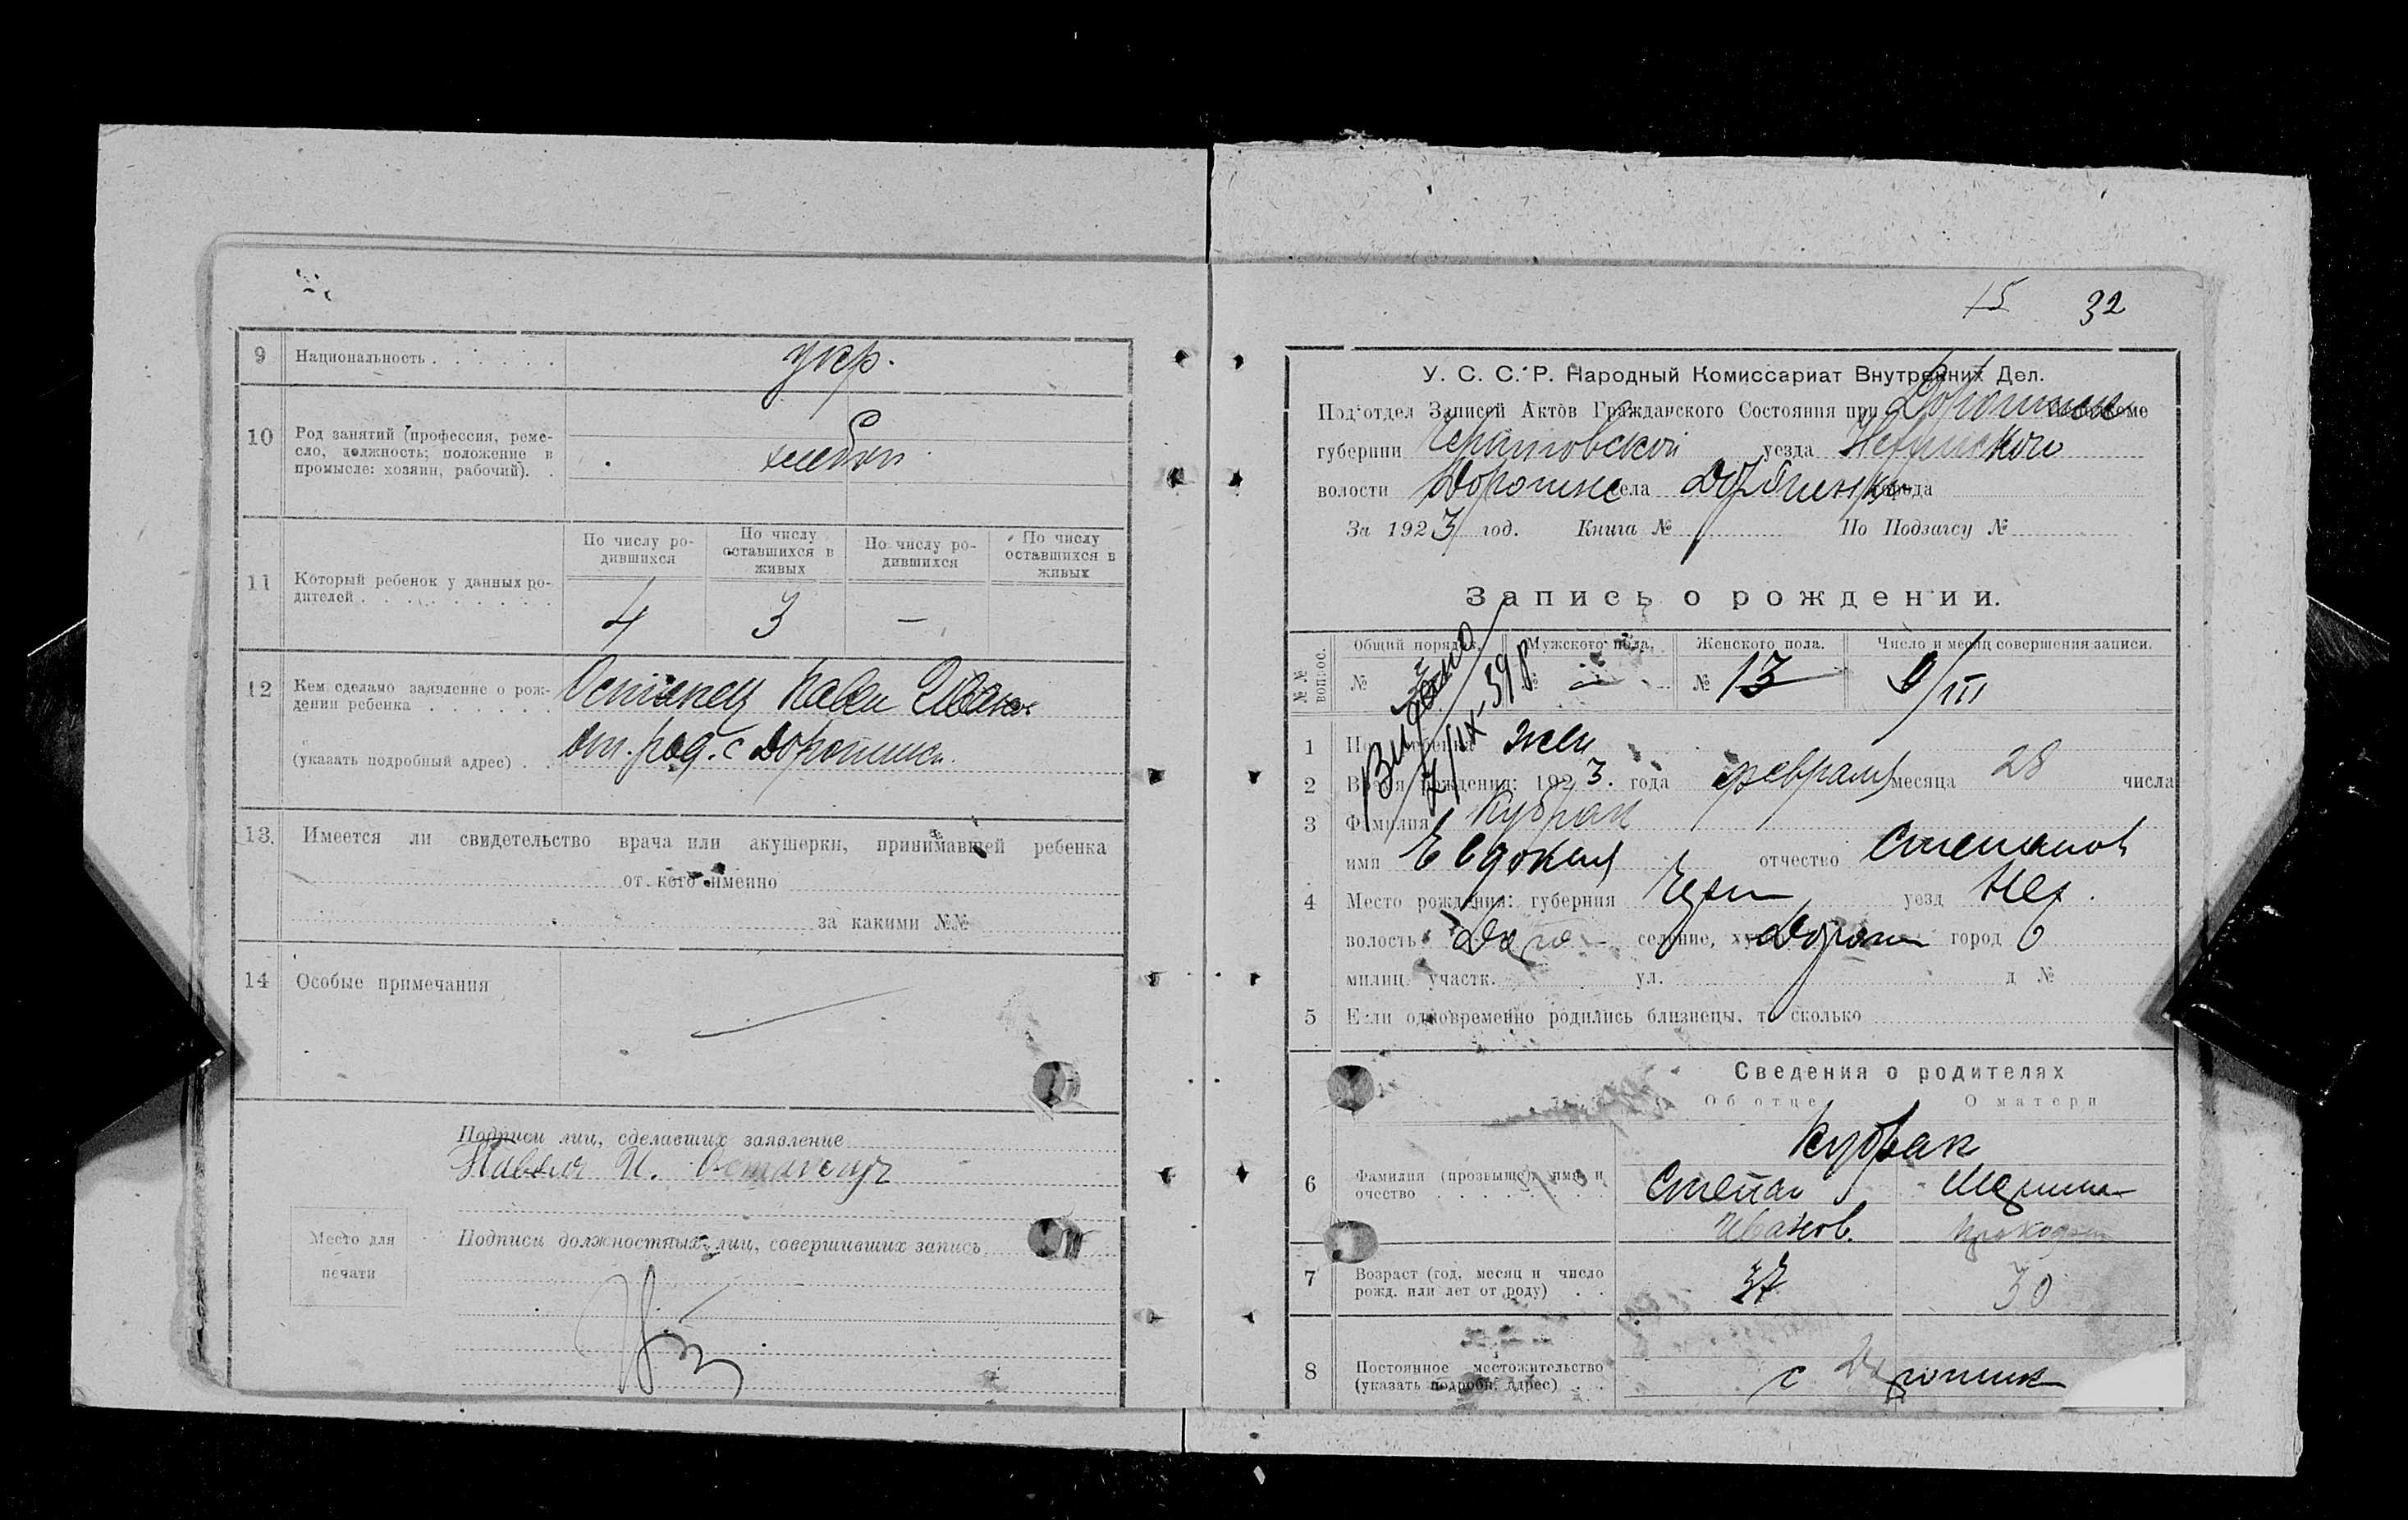 9 Национальность . . . . . . укр.
10 Род занятий (профессия, реме-
сло, должность; положение в
промысле: хозяин, рабочий). .
хлебоп
11 Который ребенок у данных ро-
дителей . . . . . . . . . .
По числу ро-
дившихся
По числу
оставшихся в
живых
По числу ро-
дившихся
По числу
оставшихся в
живых
4 3 —
12 Кем сделано заявление о рож-
дении ребенка . . . . . .
(указать подробный адрес) . .
Остапец Павел Иванов
с Дорогинка
13. Имеется ли свидетельство врача или акушерки, принимавшей ребенка
от кого именно
за какими №№
14 Особые примечания
Подписи лиц, сделавших заявление
Павел И. Остапец
Место для
печати
Подписи должностных лиц, совершивших запись
15 32
У. С. С. Р. Народный Комиссариат Внутренних Дел.
Под'отдел Записей Актов Гражданского Состояния при
губернии Черниговской уезда Нежинского
волости Дорогинс села Дорогинки города
За 1923 год. Книга № По Подзагсу №
Запись о рождении.
№№ вопрос.
Общий порядк. Мужского пола. Женского пола. Число и месяц совершения записи.
№ № — № 13 9/III
1 Пол ребенка жен
2 Время рождения: 1923. года февраля месяца 28 числа
3 Фамилия Кубрак
имя Евдокия отчество Степанов
4 Место рождения: губерния Черн уезд Неж.
волость Доро селение, хутор Дорогин город
милиц. участк. ул. д №
5 Если одновременно родились близнецы, то сколько
Сведения о родителях
Об отце О матери
6 Фамилия (прозвище), имя и
очество . . . . . . . .
Кубрак
Степан
Иванов.
7 Возраст (год, месяц и число
рожд. или лет от роду) . .
37 30
8 Постоянное местожительство
(указать подробн. адрес) . .
с Дорогинк